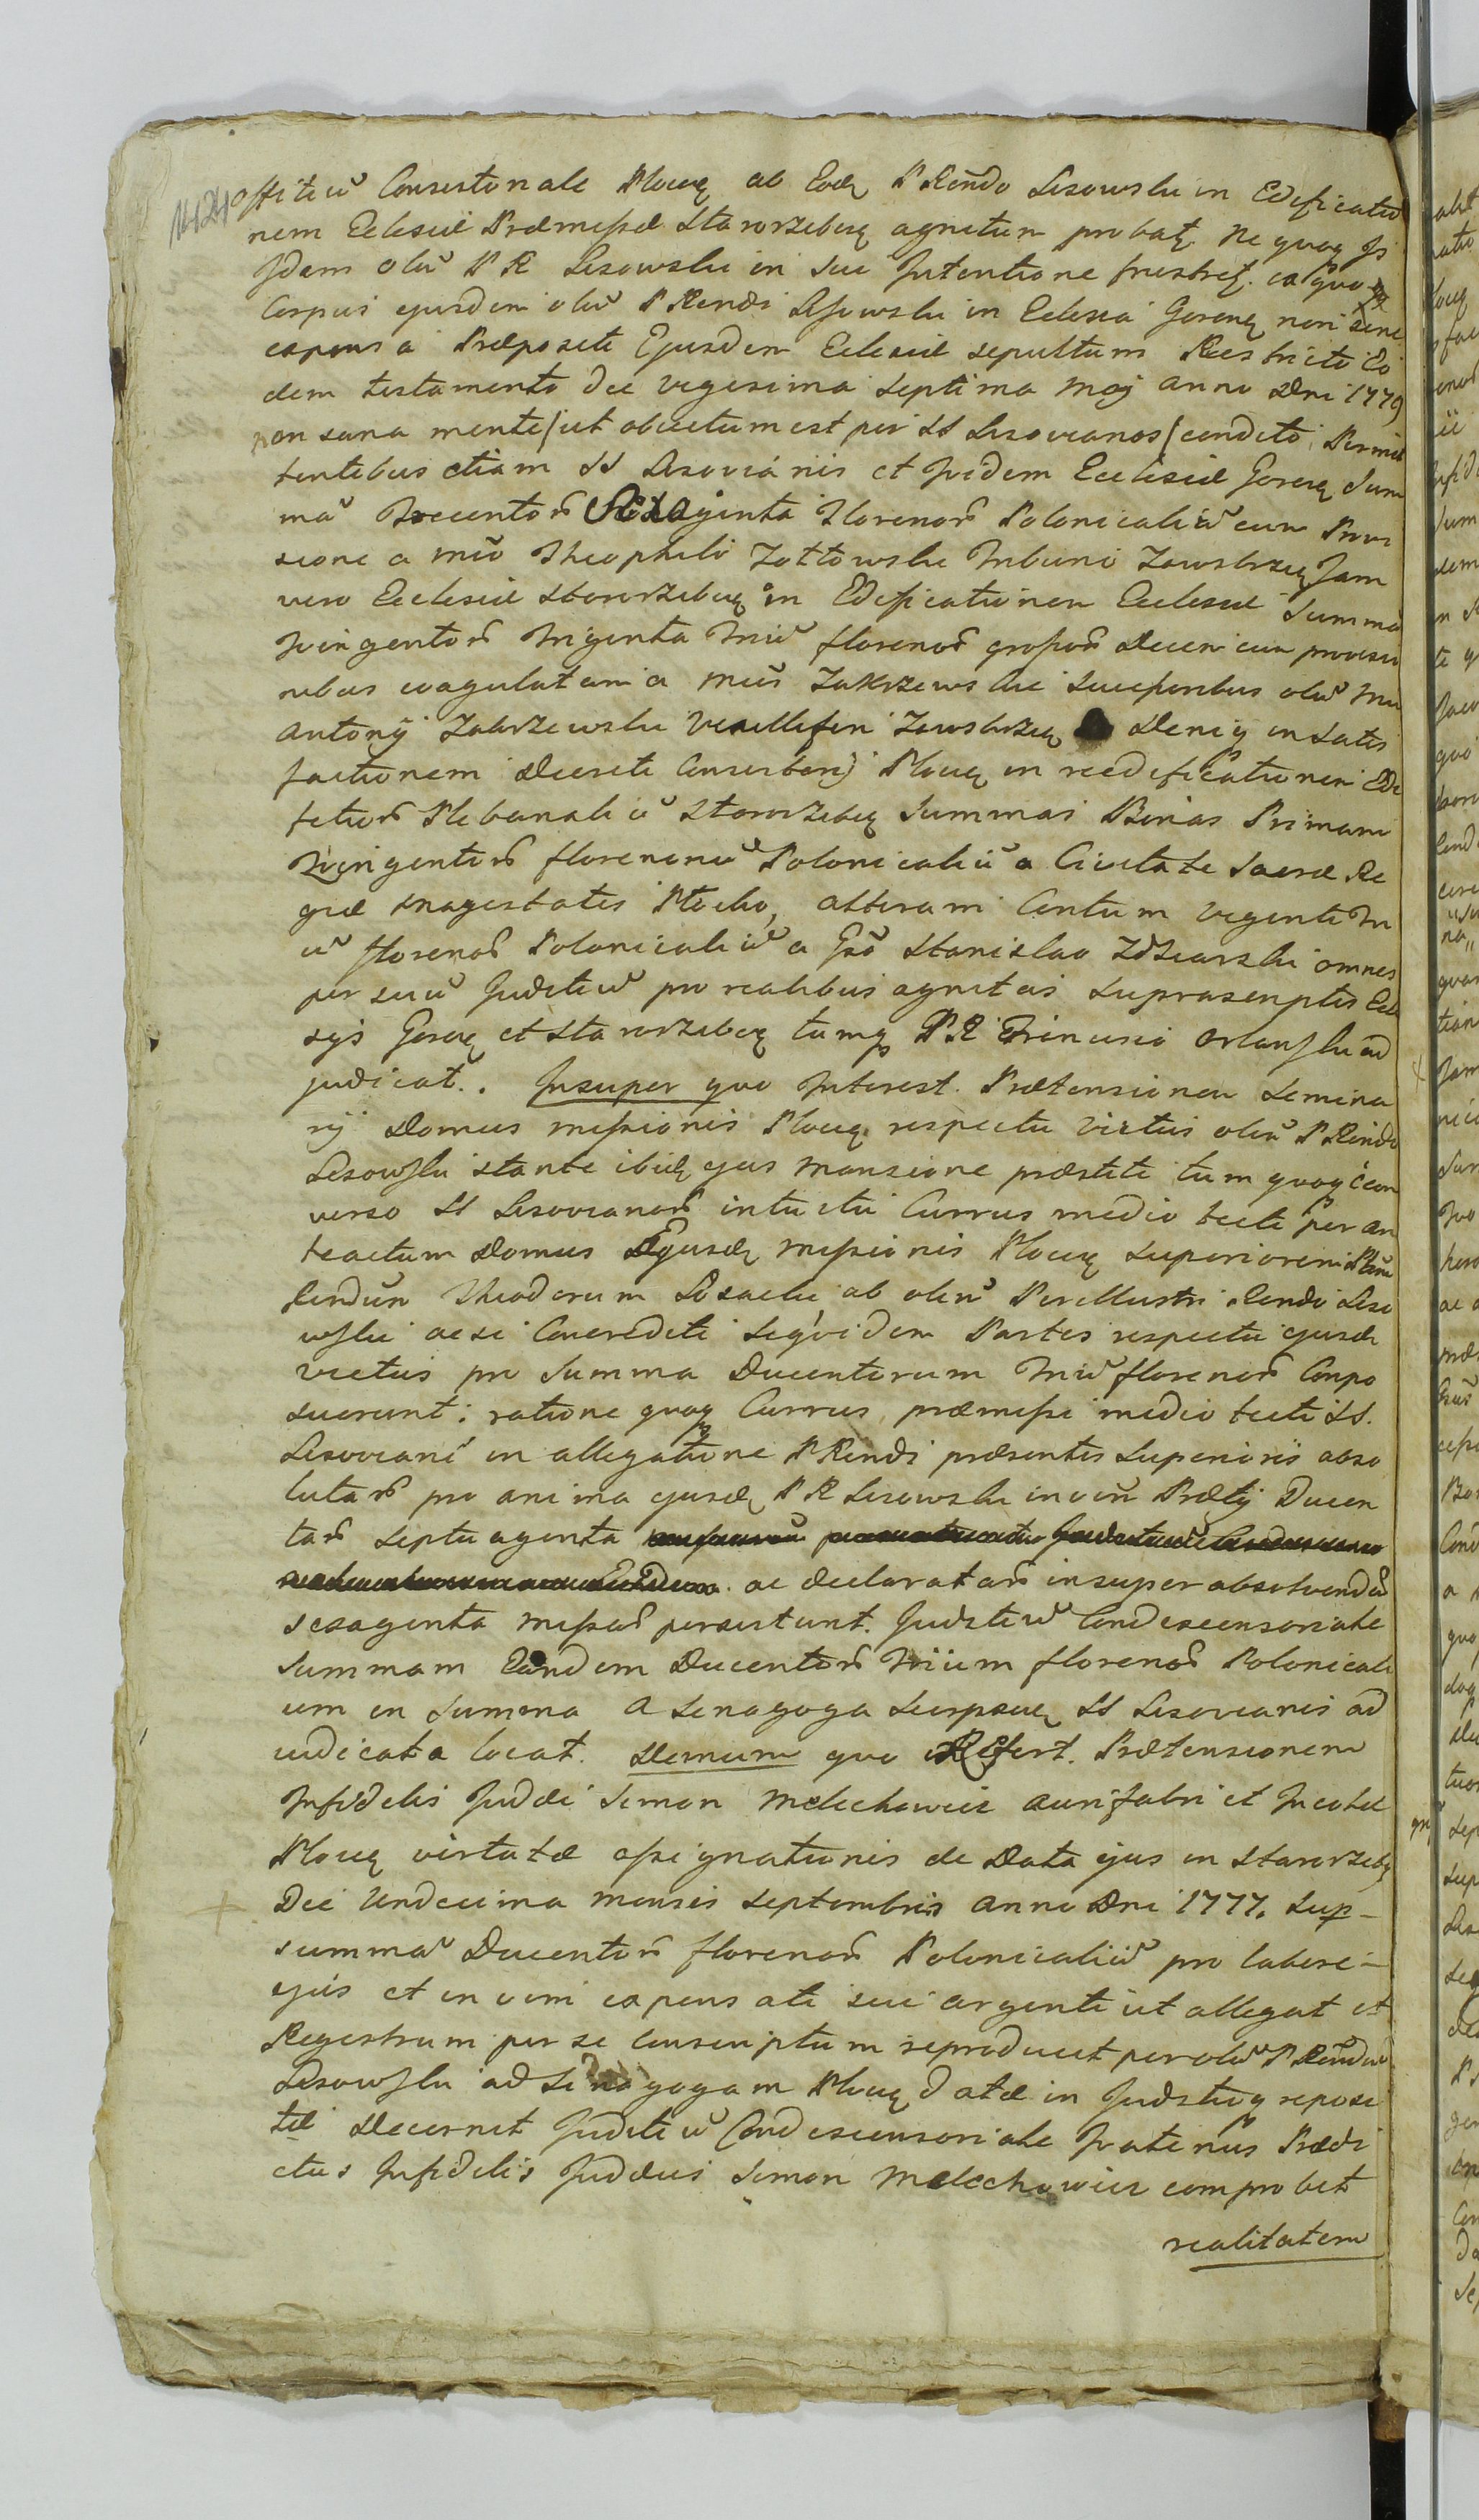 Officiũ Consistoriale Ploceɳ ab Eodɳ P Rendo Lisowski in Edificatio
nem Eclesiæ Præmissæ Starorzebeɳ agnitum probat. Ne quoqɜ Is
Idem olim P R Lisowski in sui Intentione frustret. ex quo
Corpus ejusdem olim P Rendi Lisowski in Eclesia Goreneɳ non sine
expensa Præpositi Ejusdem Eclesiæ sepultum Restricto Eo
dem testamento die vigesima septima Maj anno Dni 1779
non sana mente /ut obiectum est per SS Lisovianos/ condito, Permit
tentibus etiam SS Lisovianis et Ividem Ecclesiæ Goreneɳ Sum
mã Trecentoꝝ Sexaginta Florenoꝝ Polonicaliũ cum Provi
sione a Mco Theophilo Zottowski Tribuni Zawskrzeɳ Jam
vero Ecclesiæ Starorzebeɳ in Edificationem Eclesiæ Summã
Quingentoꝝ Triginta Triũ florenoꝝ grossoꝝ Decem cum provisio
nibus coagulatam a Mcis Zakrzewskie Sucessoribus olim Mci
Antonij Zakrzewski Vexilliferi Zawskrzeɳ Deniqɜ in Satis
factionem Decreti Consistorij Ploceɳ in reedificationem Edi
ficioꝝ Plebanaliũ Starorzebeɳ Summas Binas Primam
Quingentoꝝ florenorũ Polonicaliũ a Civitate Sacræ Re
giæ Magestatis Plocko, alteram Centum viginti Tri
ũ florenoꝝ Polonicaliũ a Gso Stanislao Zdziarski omnes
per suũ Juditiũ pro realibus agnitas Suprascriptis Ecle
sijs Goreneɳ et Starorzebeɳ tumqɜ P R Orlowski ad
judicat. Insuper quo Interest. Prætensionem Semina
rij Domus Missionis Ploceɳ respectu Victus olim P Rendo
Lisowski stante ibidɳ ejus Mansione præstiti tum quoqɜ è con
verso SS Lisovianoꝝ intuitu Currus medio tecti per an
teactum Domus Ejusdɳ Missionis Ploceɳ Superiorem Plrm
Rendũm Theodorum ab olim Perillustri Rendo Liso
wski acsi Concrediti Seqvidem Partes respectu ejusdɳ
victus pro Summa Ducentorum Triũ florenoꝝ Compo
suerunt; ratione quoqɜ Currus præmissi medio tecti SS.
Lisoviani in allegatione P Rendi præsentis Superioris abso
lutaꝝ pro anima ejusdɳ P R Lisowski in vim Prætij Ducen
taꝝ Septuaginta
ac declarataꝝ insuper absolvendaꝝ
sexaginta Missaꝝ persistunt. Juditiũ Condescensoriale
Summam Eandem Ducentoꝝ Triium florenoꝝ Polonicali
um in Summa A Sinagoga Sierpceɳ SS Lisovianis ad
iudicata locat. Demum quo Refert. Prætensionem
Infidelis Judæi Simon Melechowicz aurifabri et Incolæ
Ploceɳ virtutæ assignationis de Data ejus in Starorzeby
Die Undecima Mensis Septembris anno Dni 1777. Sup-
summã Ducentoꝝ florenoꝝ Polonicaliũ pro labore-
ejus et in vim expensati sui argenti ut allegat et
Regestrum per se conscriptum reproducit per olim P Rendũ
Lisowski ad Sinagogam Ploceɳ datæ in Judstioqɜ reposi
tæ Decernit Juditiũ Condescensoriale Quatenus Prædi
ctus Infidelis Judæus Simon Melechowicz comprobet
realitatem